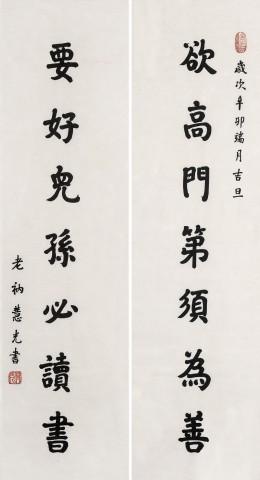 歲次辛卯端月吉旦
欲高門第須為善
要好兒孫必讀書
老衲慧光書